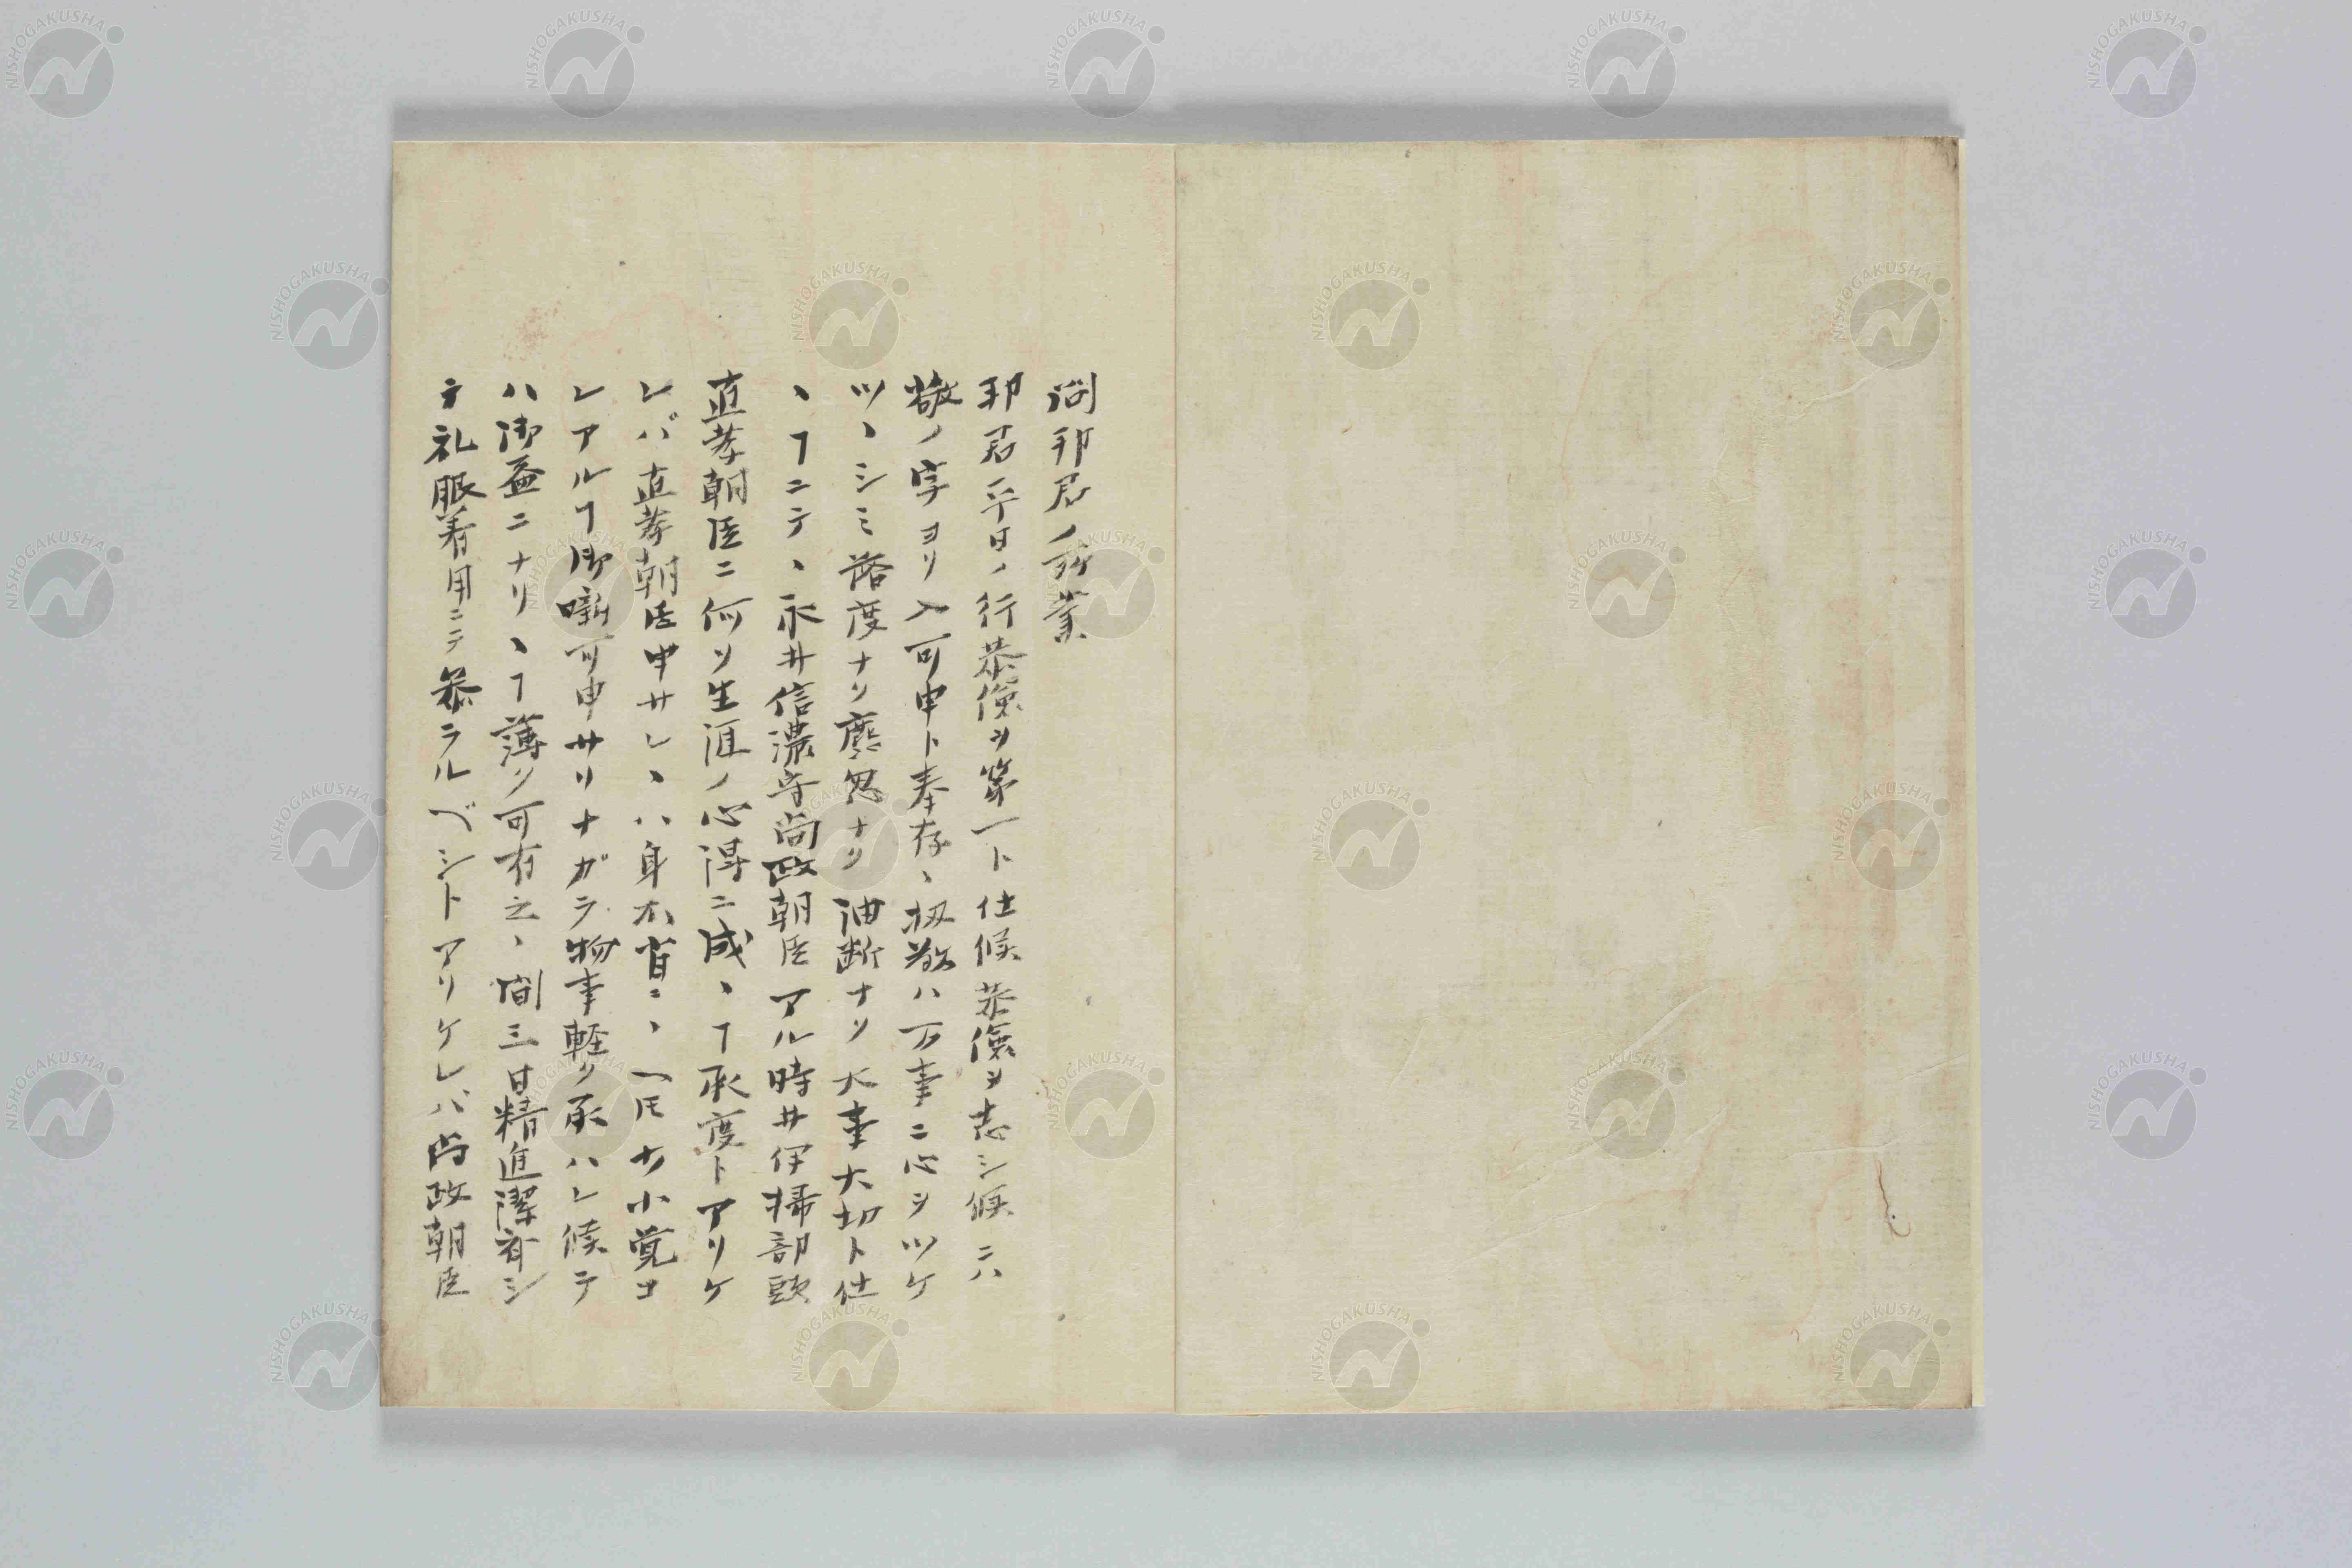 問邦君ノ所業
邦君平日ノ行恭倹ヲ第一ト仕候恭倹ヲ志シ候ニハ
敬ノ字ヨリ入可申ト奉存、扨敬ハ万事ニ心ヲツケ
ツヽシミ落度ナク麁忽ナク油断ナク大事大切ト仕
ヽヿニテ、永井信濃守尚政朝臣アル時井伊掃部頭
直孝朝臣ニ何ソ生涯ノ心得ニ成、ヿ承度トアリケ
レバ直孝朝臣申サレヽハ身不肖ニ、ヘ𪜈少小覚ヨ
レアルヿ御噺可申サリナガラ物事軽ク承ハレ候テ
ハ御益ニナリヽヿ薄ク可有之、間三日精進潔斎シ
テ礼服着用ニテ参ラルベシトアリケレバ尚政朝臣
NISHOGAKUSHA